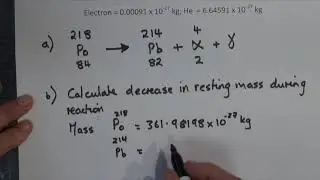 Electron = 0.00091 x 10⁻²⁷ kg; He = 6.64591 x 10⁻²⁷ kg
a) ²¹⁸₈₄Po → ²¹⁴₈₂Pb + ⁴₂α + γ
b) Calculate decrease in resting mass during
reaction
Mass ²¹⁸Po = 361.98198 x 10⁻²⁷ kg
²¹⁴Pb =